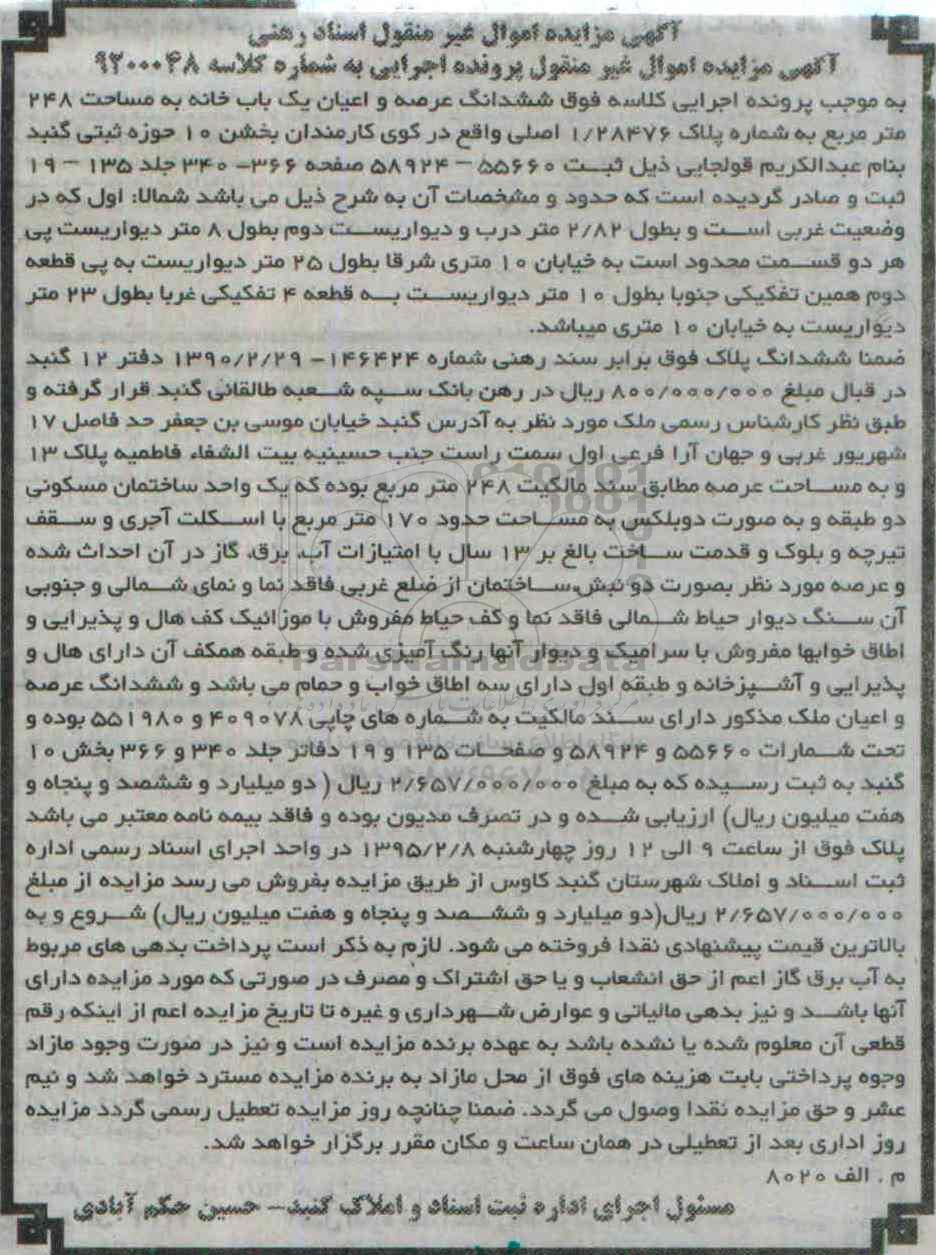 آگهی مزایده اموال غیر منقول اسناد رهنی
آگهی مزایده اموال غیر منقول پرونده اجرایی به شماره کلاسه ۹۲۰۰۰۴۸
به موجب پرونده اجرایی کلاسه فوق ششدانگ عرصه و اعیان یک باب خانه به مساحت ۲۴۸
متر مربع به شماره پلاک ۱/۲۸۴۷۶ اصلی واقع در کوی کارمندان بخشن ۱۰ حوزه ثبتی گنبد
بنام عبدالکریم قولجایی ذیل ثبت ۵۵۶۶۰ – ۵۸۹۲۴ صفحه ۳۶۶- ۳۴۰ جلد ۱۳۵ – ۱۹
ثبت و صادر گردیده است که حدود و مشخصات آن به شرح ذیل می باشد شمالا: اول که در
وضعیت غربی است و بطول ۲/۸۲ متر درب و دیواریست دوم بطول ۸ متر دیواریست پی
هر دو قسمت محدود است به خیابان ۱۰ متری شرقا بطول ۲۵ متر دیواریست به پی قطعه
دوم همین تفکیکی جنوبا بطول ۱۰ متر دیواریست به قطعه ۴ تفکیکی غربا بطول ۲۳ متر
دیواریست به خیابان ۱۰ متری میباشد.
ضمنا ششدانگ پلاک فوق برابر سند رهنی شماره ۱۴۶۴۲۴- ۱۳۹۰/۲/۲۹ دفتر ۱۲ گنبد
در قبال مبلغ ۸۰۰/۰۰۰/۰۰۰ ریال در رهن بانک سپه شعبه طالقانی گنبد قرار گرفته و
طبق نظر کارشناس رسمی ملک مورد نظر به آدرس گنبد خیابان موسی بن جعفر حد فاصل ۱۷
شهریور غربی و جهان آرا فرعی اول سمت راست جنب حسینیه بیت الشفاء فاطمیه پلاک ۱۳
و به مساحت عرصه مطابق سند مالکیت ۲۴۸ متر مربع بوده که یک واحد ساختمان مسکونی
دو طبقه و به صورت دوبلکس به مساحت حدود ۱۷۰ متر مربع با اسکلت آجری و سقف
تیرچه و بلوک و قدمت ساخت بالغ بر ۱۳ سال با امتیازات آب، برق، گاز در آن احداث شده
و عرصه مورد نظر بصورت دو نبش، ساختمان از ضلع غربی فاقد نما و نمای شمالی و جنوبی
آن سنگ دیوار حیاط شمالی فاقد نما و کف حیاط مفروش با موزائیک کف هال و پذیرایی و
اطاق خوابها مفروش با سرامیک و دیوار آنها رنگ آمیزی شده و طبقه همکف آن دارای هال و
پذیرایی و آشپزخانه و طبقه اول دارای سه اطاق خواب و حمام می باشد و ششدانگ عرصه
و اعیان ملک مذکور دارای سند مالکیت به شماره های چاپی ۴۰۹۰۷۸ و ۵۵۱۹۸۰ بوده و
تحت شمارات ۵۵۶۶۰ و ۵۸۹۲۴ و صفحات ۱۳۵ و ۱۹ دفاتر جلد ۳۴۰ و ۳۶۶ بخش ۱۰
گنبد به ثبت رسیده که به مبلغ ۲/۶۵۷/۰۰۰/۰۰۰ ریال ( دو میلیارد و ششصد و پنجاه و
هفت میلیون ریال) ارزیابی شده و در تصرف مدیون بوده و فاقد بیمه نامه معتبر می باشد
پلاک فوق از ساعت ۹ الی ۱۲ روز چهارشنبه ۱۳۹۵/۲/۸ در واحد اجرای اسناد رسمی اداره
ثبت اسناد و املاک شهرستان گنبد کاوس از طریق مزایده بفروش می رسد مزایده از مبلغ
۲/۶۵۷/۰۰۰/۰۰۰ ریال(دو میلیارد و ششصد و پنجاه و هفت میلیون ریال) شروع و به
بالاترین قیمت پیشنهادی نقدا فروخته می شود. لازم به ذکر است پرداخت بدهی های مربوط
به آب برق گاز اعم از حق انشعاب و یا حق اشتراک و مصرف در صورتی که مورد مزایده دارای
آنها باشد و نیز بدهی مالیاتی و عوارض شهرداری و غیره تا تاریخ مزایده اعم از اینکه رقم
قطعی آن معلوم شده یا نشده باشد به عهده برنده مزایده است و نیز در صورت وجود مازاد
وجوه پرداختی بابت هزینه های فوق از محل مازاد به برنده مزایده مسترد خواهد شد و نیم
عشر و حق مزایده نقدا وصول می گردد. ضمنا چنانچه روز مزایده تعطیل رسمی گردد مزایده
روز اداری بعد از تعطیلی در همان ساعت و مکان مقرر برگزار خواهد شد.
م . الف ۸۰۲۰
مسئول اجرای اداره ثبت اسناد و املاک گنبد– حسین حکم آبادی
ParsNamadData